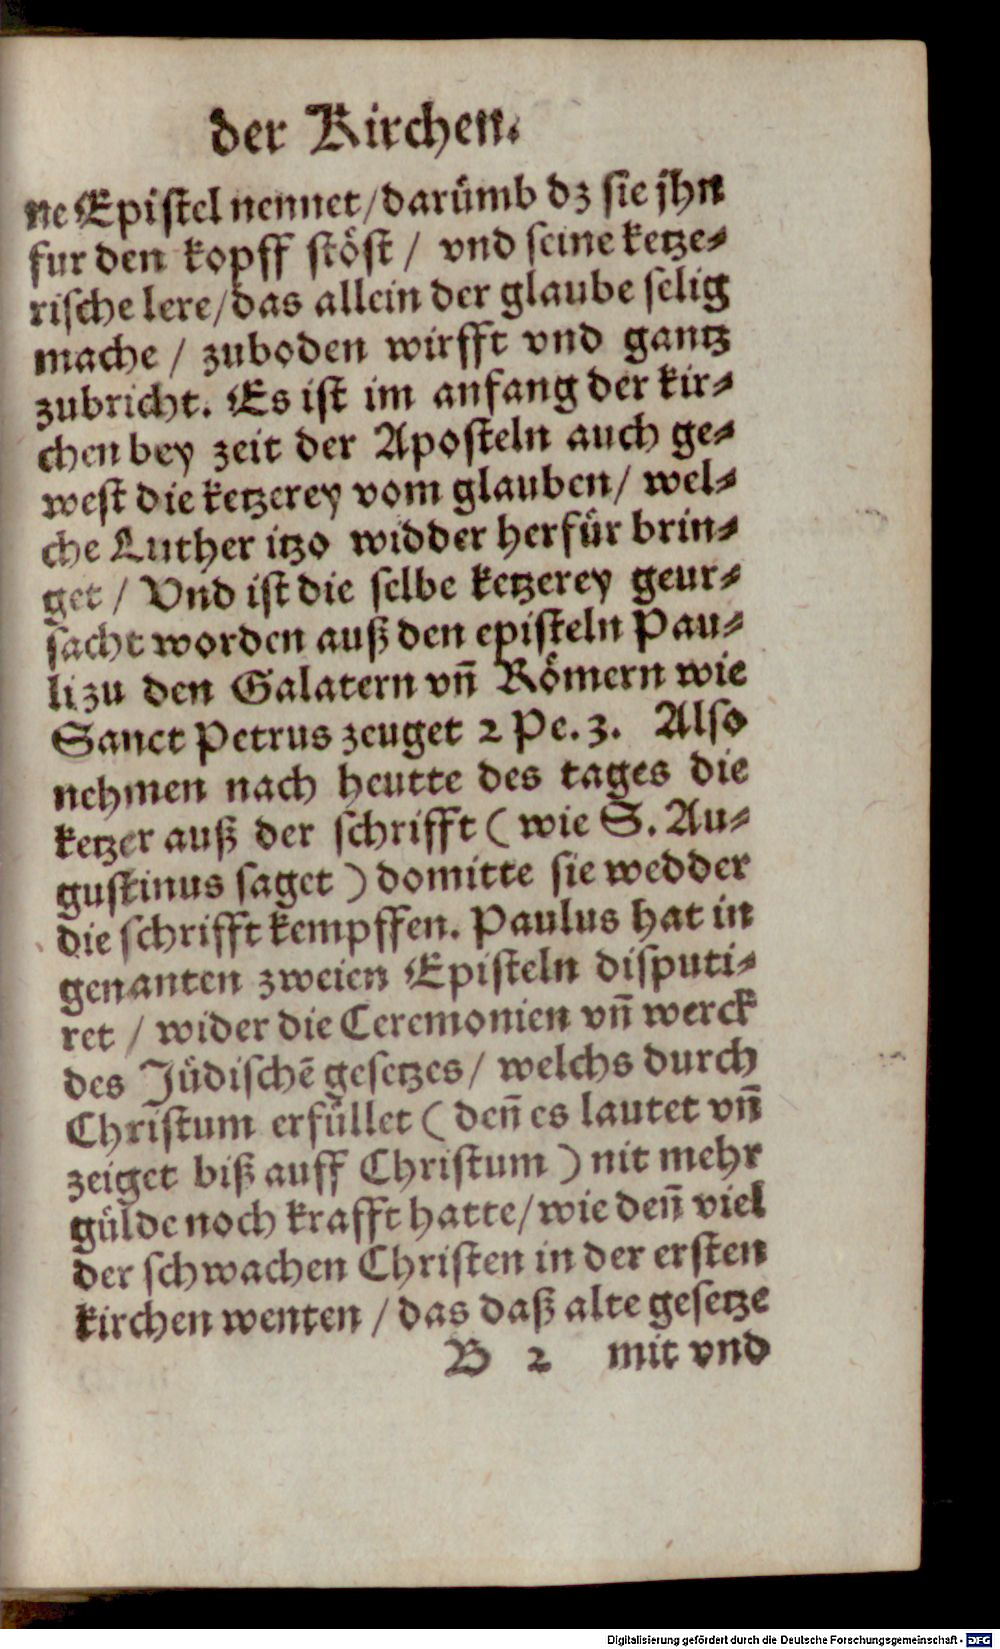 der Kirchen.
ne Epistel nennet/darümb dz sie jhn
fur den kopff stöst / vnd seine ketze⸗
rische lere/das allein der glaube selig
mache / zuboden wirfft vnd gantz
zubricht. Es ist im anfang der kir⸗
chen bey zeit der Aposteln auch ge⸗
west die ketzerey vom glauben/ wel⸗
che Luther itzo widder herfür brin⸗
get / Vnd ist die selbe ketzerey geur⸗
sacht worden auß den episteln Pau⸗
li zu den Galatern vn̄ Römern wie
Sanct Petrus zeuget 2 Pe. 3. Also
nehmen nach heutte des tages die
ketzer auß der schrifft ( wie S. Au⸗
gustinus saget ) domitte sie wedder
die schrifft kempffen. Paulus hat in
genanten zweien Episteln disputi⸗
ret / wider die Ceremonien vn̄ werck
des Jüdischē gesetzes/ welchs durch
Christum erfüllet ( den̄ es lautet vn̄
zeiget biß auff Christum ) nit mehr
gülde noch krafft hatte/wie den̄ viel
der schwachen Christen in der ersten
kirchen wenten / das daß alte gesetze
B 2 mit vnd
Digitalisierung gefördert durch die Deutsche Forschungsgemeinschaft - DFG